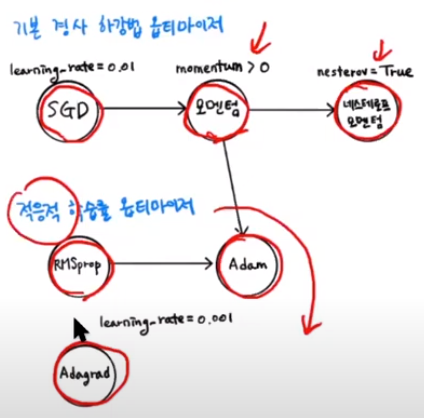 기본 경사 하강법 옵티마이저
learning_rate=0.01
momentum > 0
nesterov=True
SGD
모멘텀
네스테로프
모멘텀
적응적 학습률 옵티마이저
RMSprop
Adam
learning_rate=0.001
Adagrad